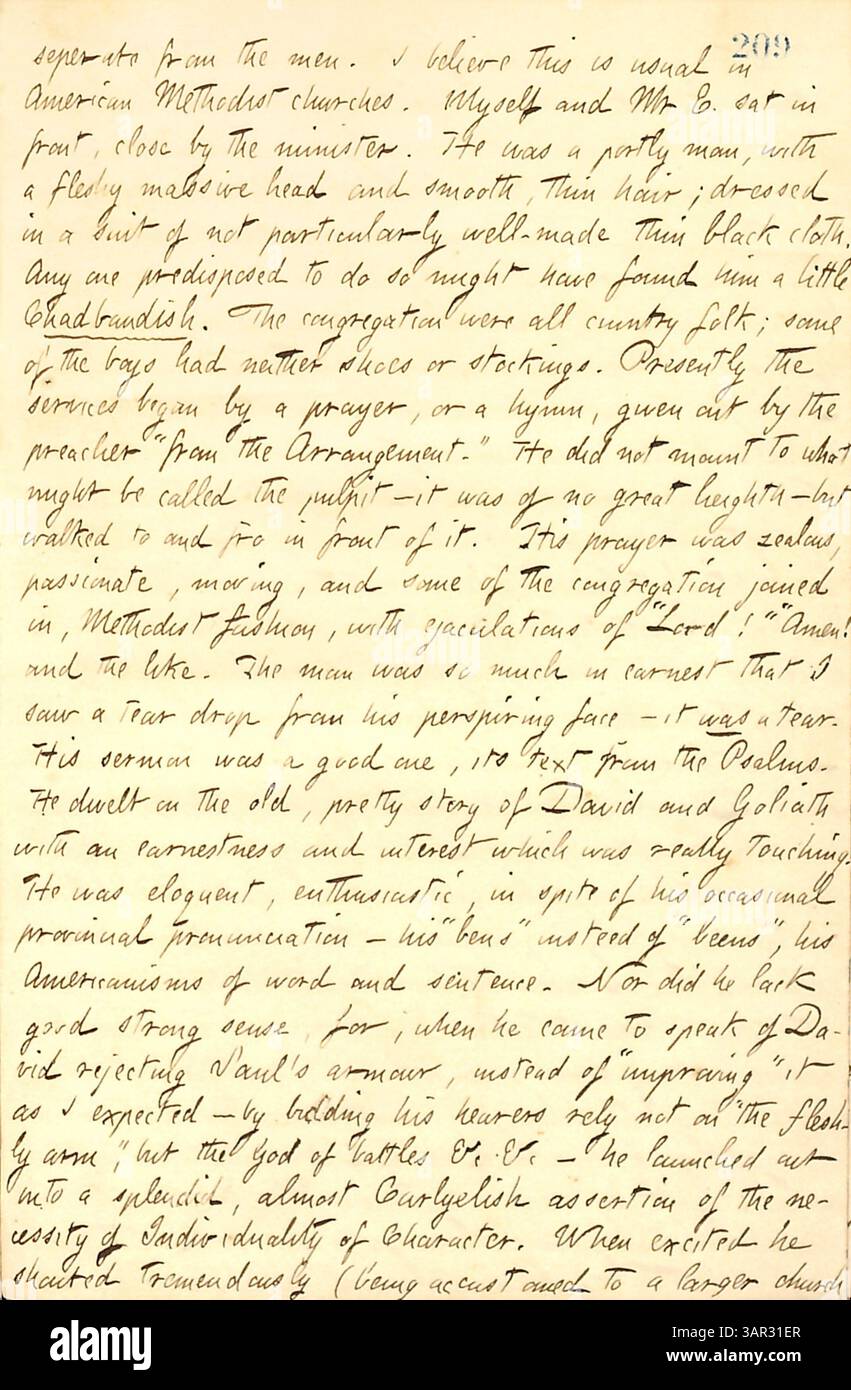 209
seperate from the men. I believe this is usual in
American Methodist churches. Myself and Mr E. sat in
front, close by the minister. He was a portly man, with
a fleshy massive head and smooth, thin hair; dressed
in a suit of not particularly well-made thin black cloth.
Any one predisposed to do so might have found him a little
Chadbandish. The congregation were all country folk; some
of the boys had neither shoes or stockings. Presently the
services began by a prayer, or a hymn, given out by the
preacher "from the Arrangement." He did not mount to what
might be called the pulpit — it was of no great heighth — but
walked to and fro in front of it. His prayer was zealous,
passionate, moving, and some of the congregation joined
in, Methodist fashion, with ejaculations of "Lord!" "Amen!
and the like. The man was so much in earnest that I
saw a tear drop from his perspiring face — it was a tear.
His sermon was a good one, its text from the Psalms.
He dwelt on the old, pretty story of David and Goliath
with an earnestness and interest which was really touching.
He was eloquent, enthusiastic, in spite of his occasional
provincial pronunciation — his "bens" insteed of "beens", his
Americanisms of word and sentence. Nor did he lack
good strong sense, for, when he came to speak of Da-
vid rejecting Saul's armour, instead of "improving" it
as I expected — by bidding his hearers rely not on "the flesh-
ly arm", but the God of battles &c. &c. — he launched out
into a splendid, almost Carlyelish assertion of the ne-
cessity of Individuality of Character. When excited he
shouted tremendously (being accustomed to a larger church
alamy
Image ID: 3AR31ER
www.alamy.com